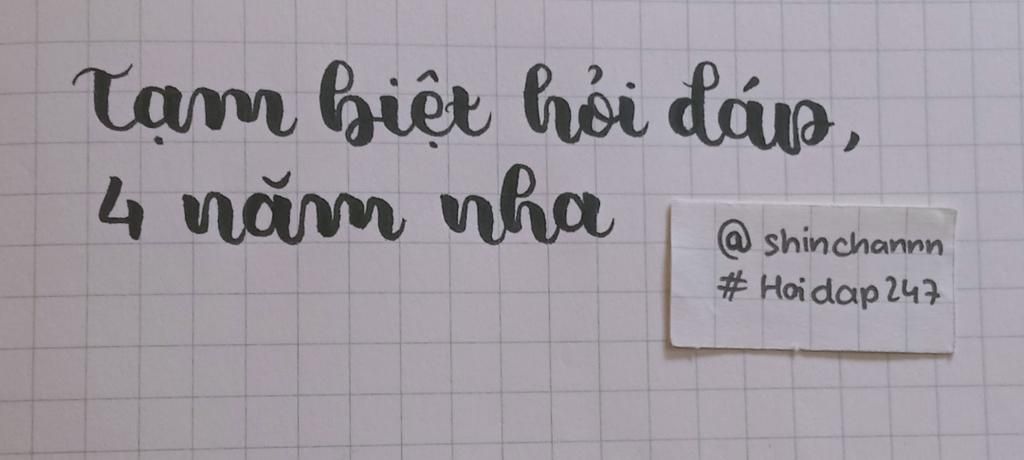 Tạm biệt hỏi đáp,
4 năm nha
@ shinchannn
# Hoidap247